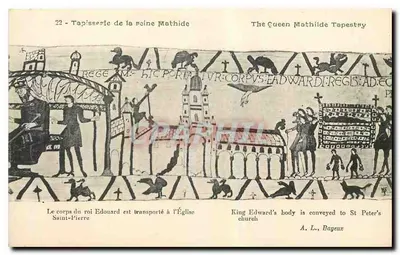 22 - Tapisserie de la reine Mathide
The Queen Mathilde Tapestry
HIC PORTATUR CORPUS EADWARDI REGIS AD
Le corps du roi Edouard est transporté à l'Église
Saint-Pierre
King Edward's body is conveyed to St Peter's
church
A. L., Bayeux